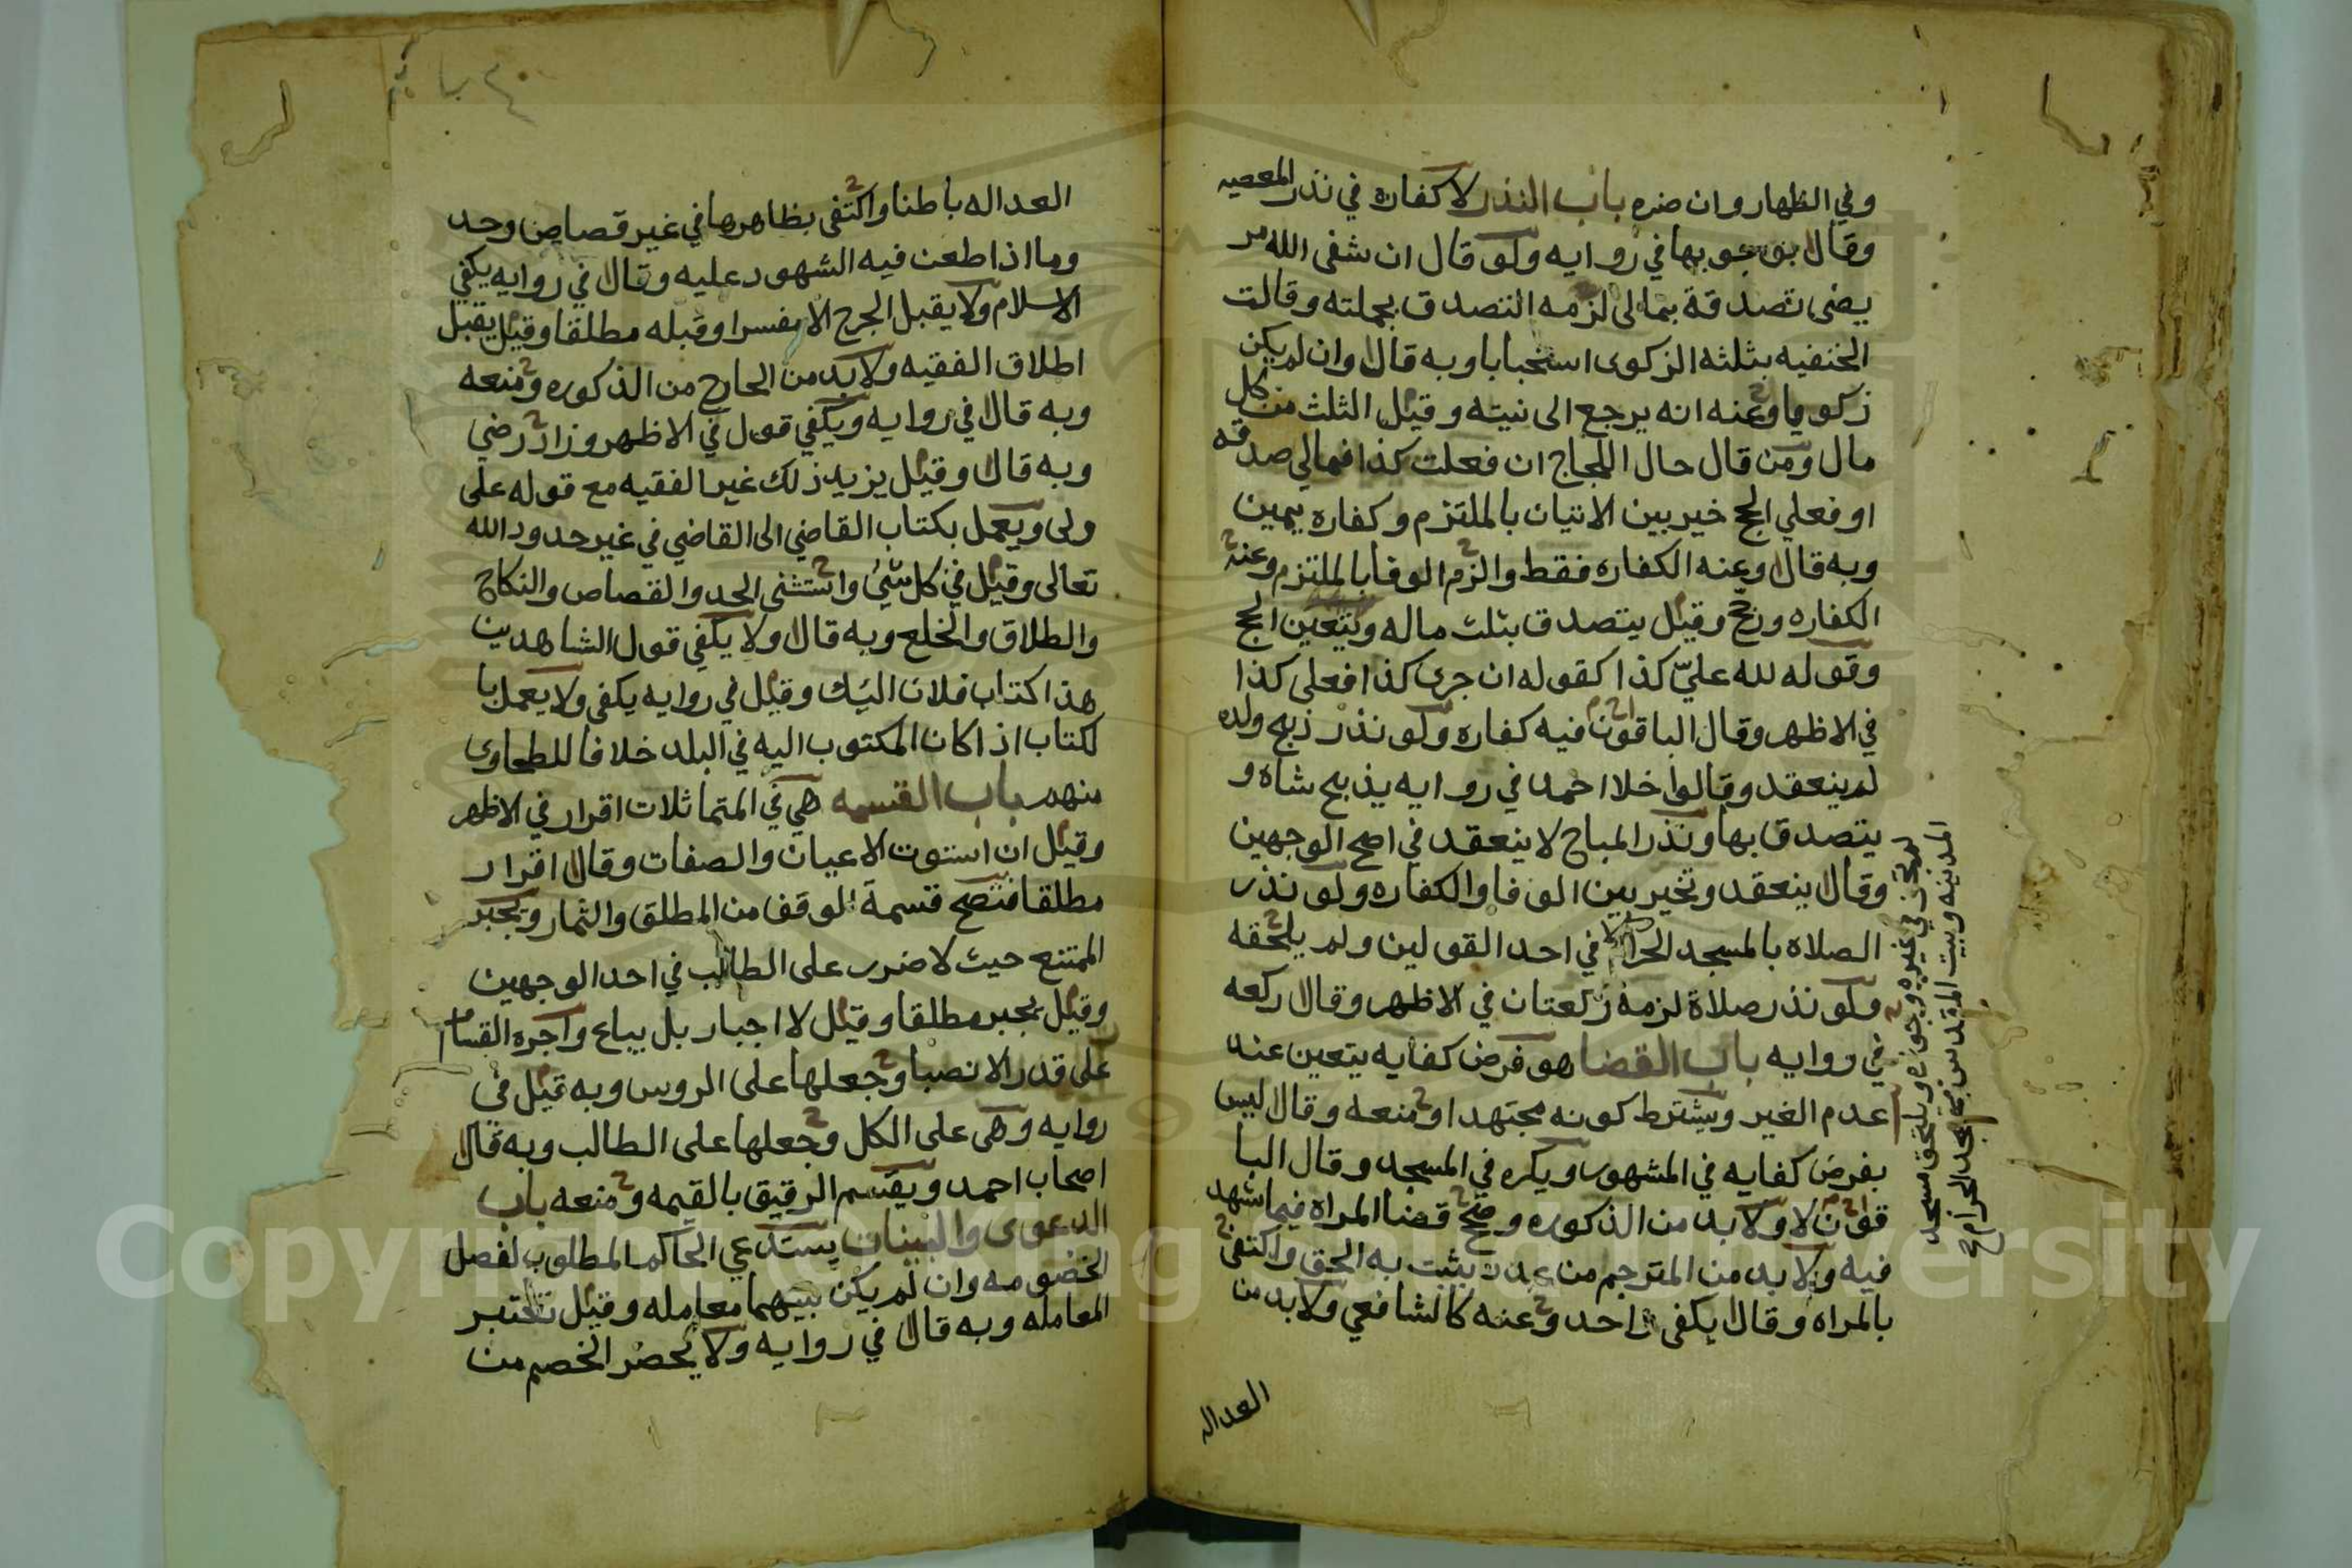 وفي الظهار وان ضره باب النذر لا كفاره في نذر المعصيه
وقال بوجوبها في روايه ولو قال ان شفى الله مر
يضى تصدقة بمالى لزمه التصدق بجملته وقالت
الحنفيه بثلثه الزكوى استحبابا وبه قال وان لم يكن
زكويا وعنه انه يرجع الى نيته وقيل الثلث من كل
مال ومن قال حال اللجاج ان فعلت كذا فمالي صدقه
او فعلي الحج خير بين الاتيان بالملتزم وكفاره يمين
وبه قال وعنه الكفاره فقط والزم الوفا بالملتزم وعنه
الكفاره ورجح وقيل يتصدق بثلث ماله ويتعين الحج
وقوله لله عليّ كذا كقوله ان جرى كذا فعلى كذا
في الاظهر وقال الباقون فيه كفاره ولو نذر ذبح ولده
لم ينعقد وقالوا خلا احمد في روايه يذبح شاه و
يتصدق بها ونذر المباح لا ينعقد في اصح الوجهين
وقال ينعقد وتخير بين الوفا والكفاره ولو نذر
الصلاه بالمسجد الحرام في احد القولين ولم يلحقه
ولو نذر صلاة لزمه ركعتان في الاظهر وقال ركعه
في روايه باب القضا هو فرض كفايه يتعين عند
عدم الغير ويشترط كونه مجتهدا ومنعه وقال ليس
بفرض كفايه في المشهور ويكره في المسجد وقال البا
قون لا ولا بد من الذكوره وصح قضا المراة فيما تشهد
فيه ولا بد من المترجم من عدد يثبت به الحق واكتفى
بالمراه وقال يكفى واحد وعنه كالشافعي ولا بد من
العداله
لم يجز في غيره وجوزه ويلحق مسجد
المدينه وبيت المقدس بمسجد الحرام صح
العداله باطنا واكتفى بظاهرها في غير قصاص وحد
وما اذا طعن فيه المشهود عليه وقال في روايه يكفي
الاسلام ولا يقبل الجرح الا مفسرا وقبله مطلقا وقيل يقبل
اطلاق الفقيه ولا بد من الجارح من الذكوره ومنعه
وبه قال في روايه ويكفي قول في الاظهر وزاد رضي
وبه قال وقيل يزيد ذلك غير الفقيه مع قوله على
ولى ويعمل بكتاب القاضي الى القاضي في غير حدود الله
تعالى وقيل في كل شئ واستثنى الحد والقصاص والنكاح
والطلاق والخلع وبه قال ولا يكفي قول الشاهدين
هذا كتاب فلان اليك وقيل في روايه يكفي ولا يعمل با
لكتاب اذا كان المكتوب اليه في البلد خلافا للطحاوى
منهم باب القسمه هي في المتماثلات اقرار في الاظهر
وقيل ان استوت الاعيان والصفات وقال اقرار
مطلقا فتصح قسمة الوقف من المطلق والثمار ويجبر
الممتنع حيث لا ضرر على الطالب في احد الوجهين
وقيل يجبر مطلقا وقيل لا اجبار بل يباع واجره القسام
على قدر الانصبا وجعلها على الروس وبه قيل في
روايه وهى على الكل وجعلها على الطالب وبه قال
اصحاب احمد ويقسم الرقيق بالقيمه ومنعه باب
الدعوى والبينات يستدعي الحاكم المطلوب لفصل
الخصومه وان لم يكن بينهما معامله وقيل تعتبر
المعامله وبه قال في روايه ولا يحضر الخصم من
Copyright © King Saud University